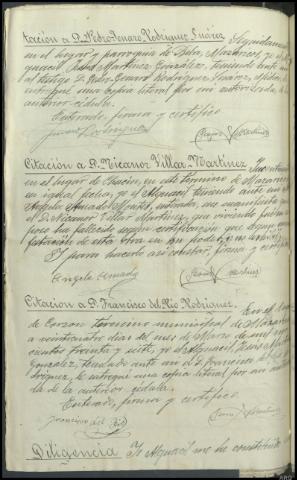 tación a D. Pedro Jenaro Rodríguez Suárez Seguidamente
en el lugar y parroquia de Mazaricos, yo el Al-
guacil Jesús Martínez González, teniendo ante mí
al testigo D. Pedro Jenaro Rodríguez Suárez, le
entregué una copia literal por mí autorizada de la
anterior cédula.
Enterado, firma y certifico
Jenaro Rodríguez
Citación a D. Nicanor Villar Martínez
en el lugar de en este término de Mazaricos
en igual fecha, yo el Alguacil teniendo ante mí a
Angela Amado me manifiesta que
D. Nicanor Villar Martínez, que viviendo
poco ha fallecido según certificación que
de esta obra en su poder
Y para hacerlo así constar, firma y
Angela Amado
Citación a D. Francisco del Río Rodríguez. En el lugar
de Corzon término municipal de Mazaricos
a veinticuatro días del mes de Marzo de mil nove-
cientos treinta y siete, yo el Alguacil Jesús Martínez
González, teniendo ante mí a D. Francisco del Río Ro-
dríguez, le entregué una copia literal por mí autoriza-
da de la anterior cédula.
Enterado, firma y certifico
Francisco del Río
Diligencia Yo Alguacil me he constituido